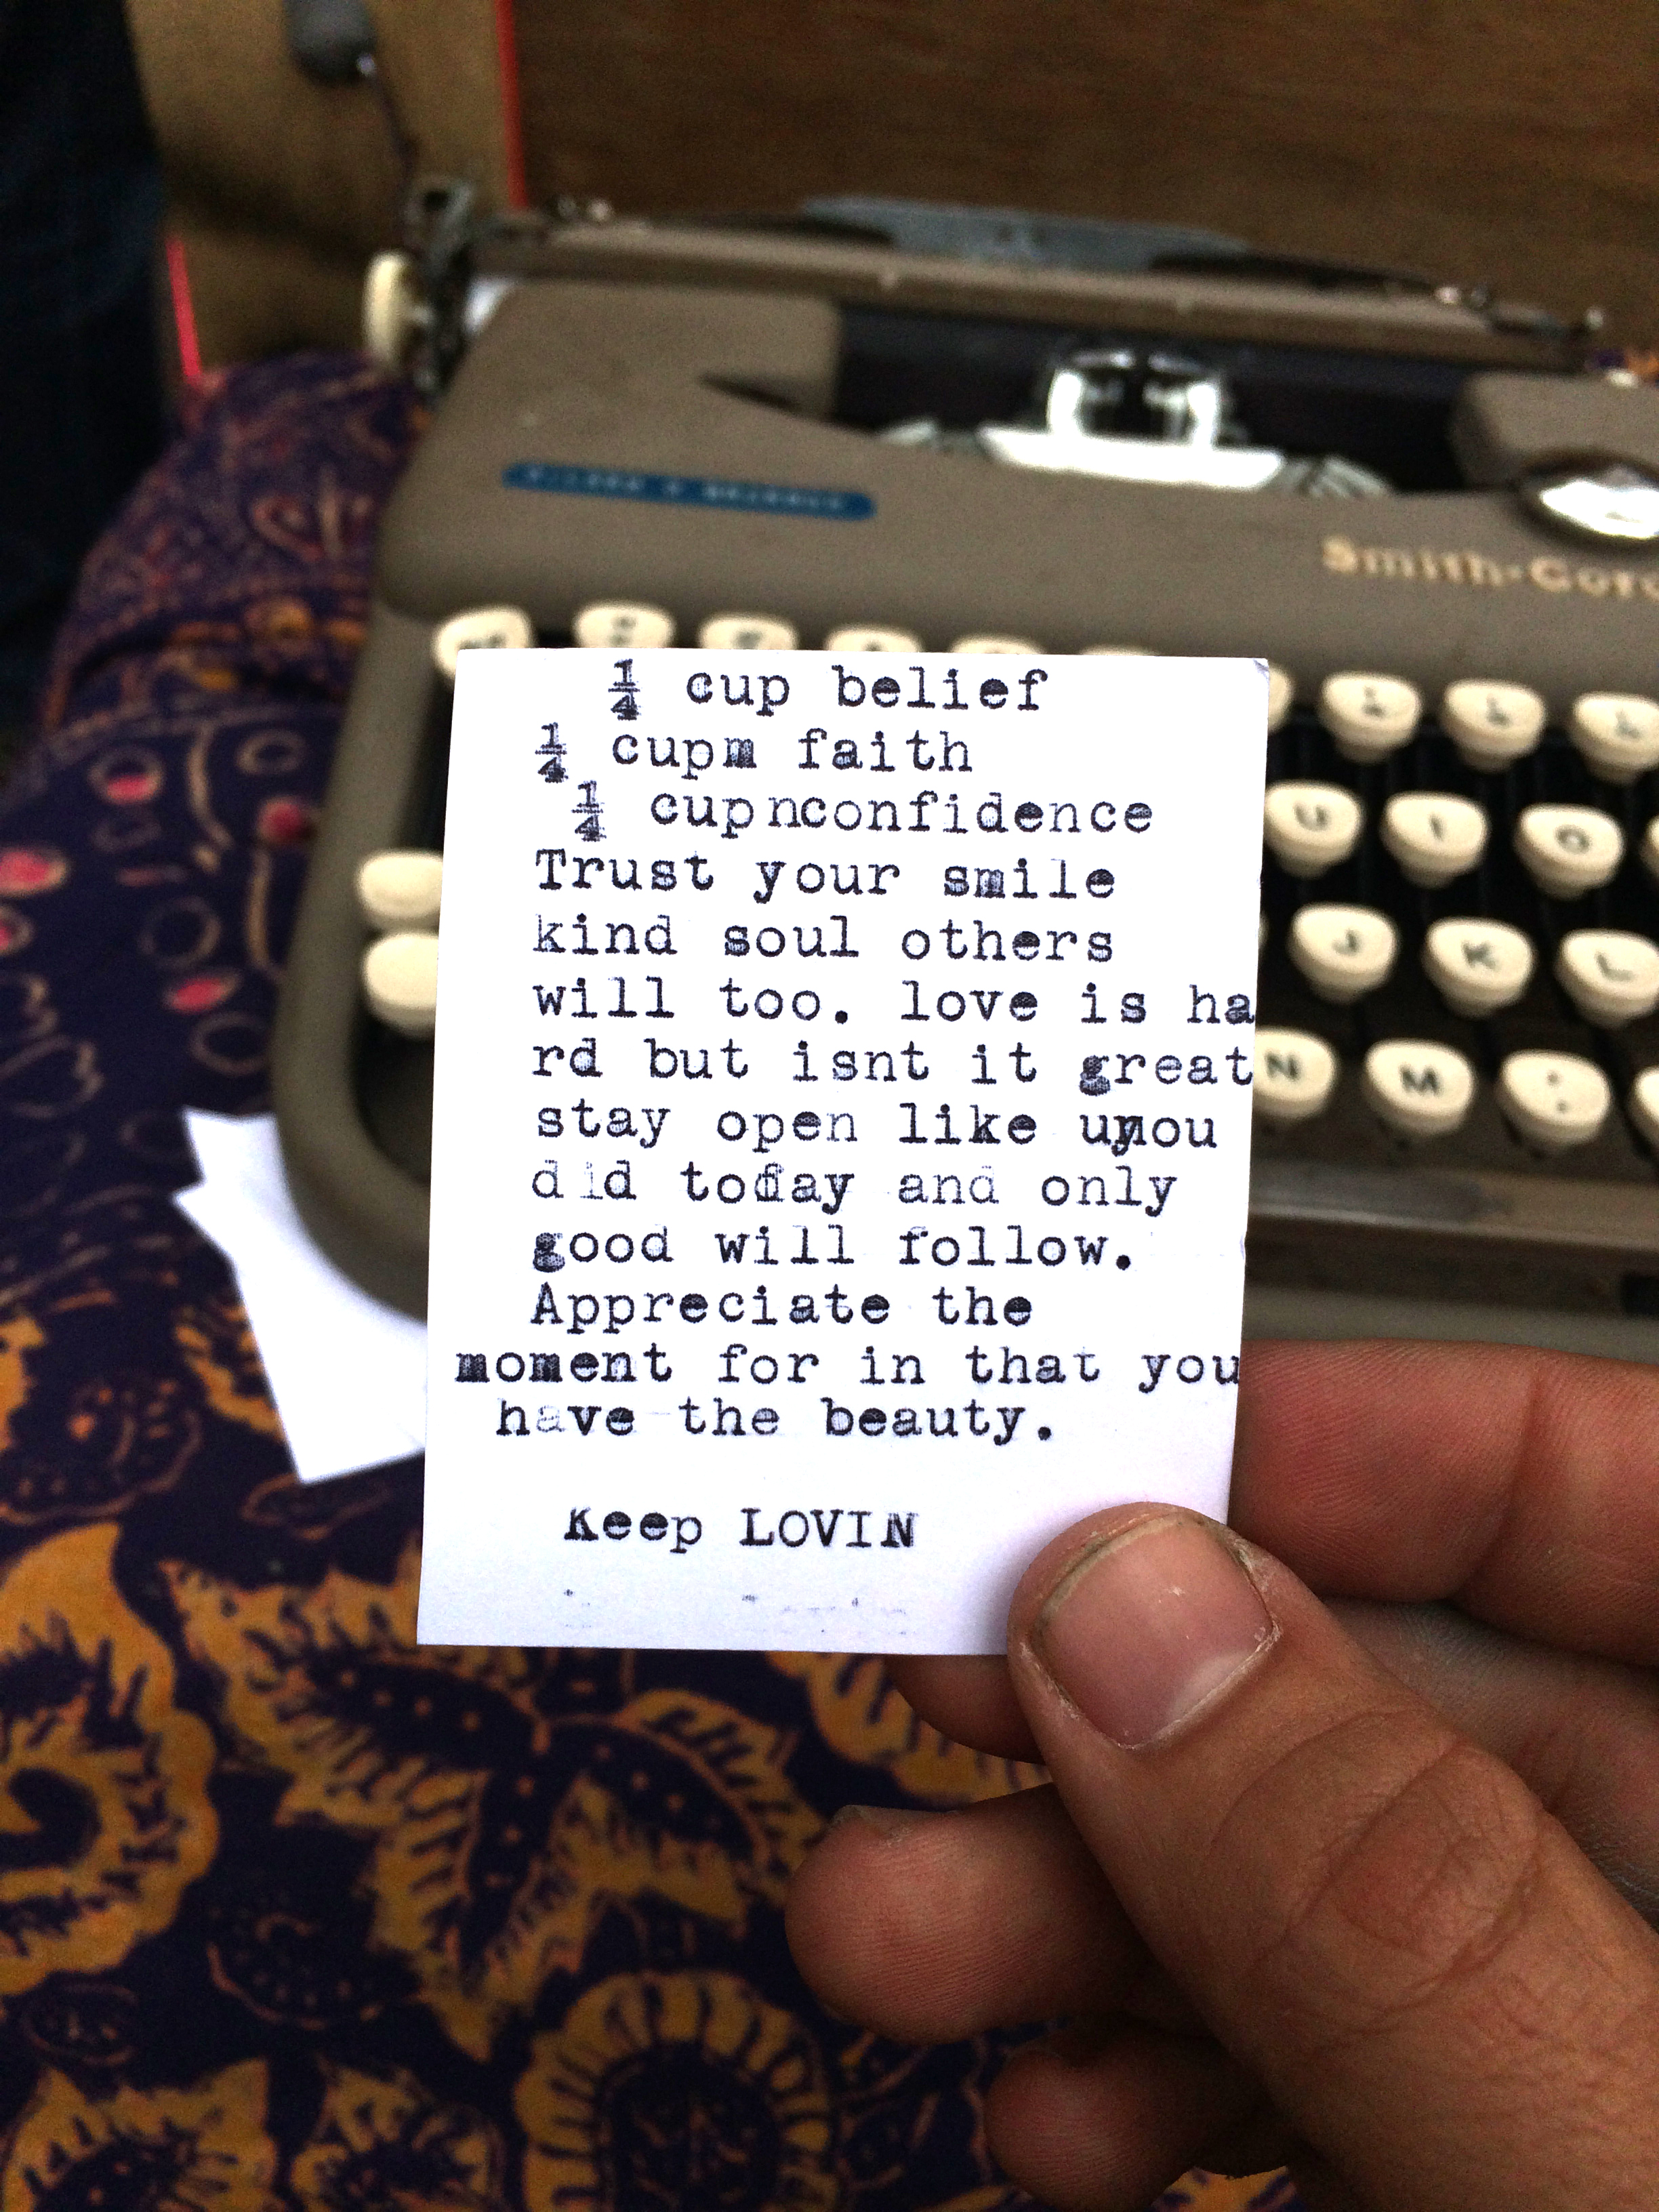 ¼ cup belief
¼ cupm faith
¼ cupnconfidence
Trust your smile
kind soul others
will too. love is ha
rd but isnt it great
stay open like uynou
did today and only
good will follow.
Appreciate the
moment for in that you
have the beauty.
Keep LOVIN
Smith-Coro
U I O
J K L
N M